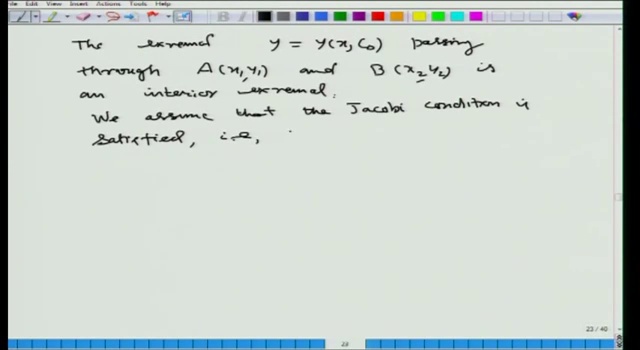 File Edit View Insert Actions Tools Help
The extremal y = y(x, C₀) passing
through A(x₁, y₁) and B(x₂, y₂) is
an interior extremal.
We assume that the Jacobi condition is
satisfied, i.e,
23 / 40
23